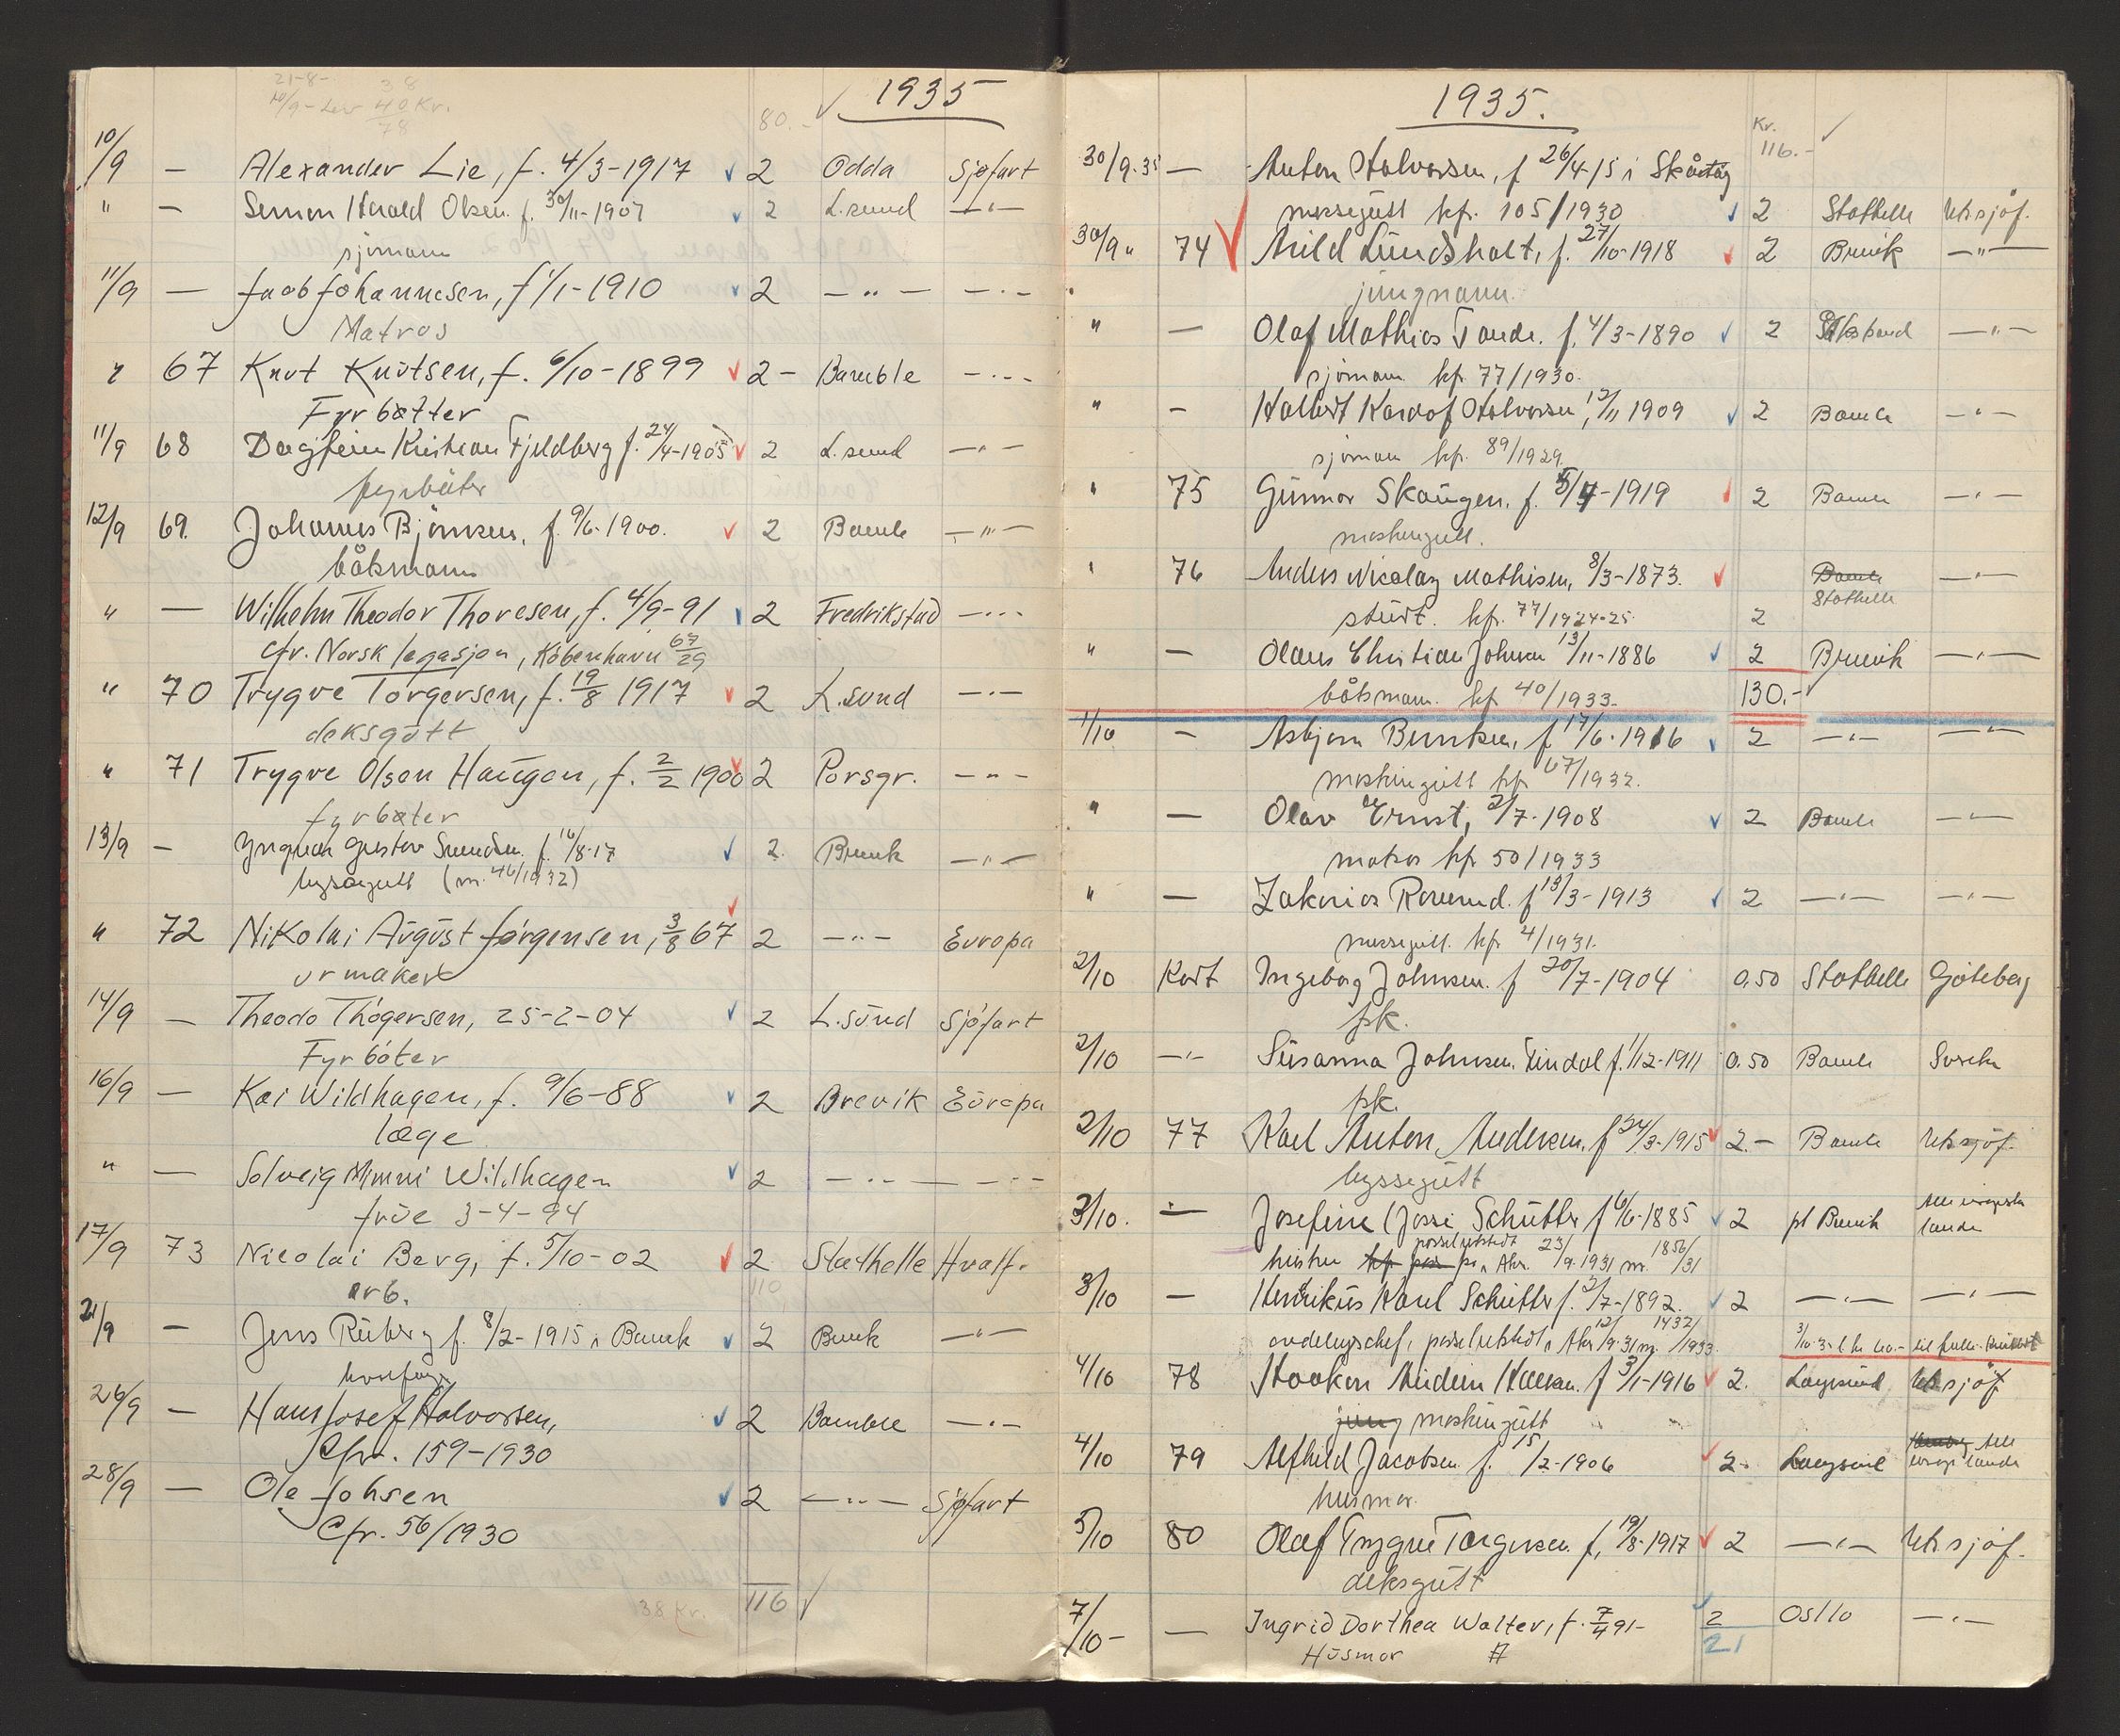 21-8- 38
10/9 - Lev 40 Kr.
78
80.- ✓ 1935
10/9 — Alexander Lie, f. 4/3-1917 2 Odda Sjøfart
" — Harald Olsen. f. 30/11-1907 2 L.sund —"—
sjømann
11/9 — Jacob Johannesen, f 1/1-1910 2 —"— —"—
Matros
" 67 Knut Knutsen, f. 6/10-1899 2- Bamble —"—
Fyrbøtter
11/9 68 Dagfinn Kristian Fjeldberg f. 24/4-1905 2 L.sund —"—
fyrbøter
12/9 69. Johannes Bjørnsen, f. 9/6-1900. 2 Bamle —"—
båtsmann
" — Wilhelm Theodor Thoresen, f. 4/9-91 2 Fredrikstad —"—
cfr. Norsk legasjon, København 67/29
" 70 Trygve Torgersen, f. 19/8 1917 2 L.sund —"—
deksgutt
" 71 Trygve Olsen Haugen, f. 2/2 1900 2 Porsgr. —"—
fyrbøter
13/9 — Yngvar Gustav f. 16/8-17 2. Brevik —"—
byssegutt (nr. 46/1932)
" 72 Nikolai August Jørgensen, 3/8 67 2 —"— Europa
urmaker
14/9 — Theodo Thøgersen, 25-2-04 2 L.sund Sjøfart
Fyrbøter
16/9 — Kai Wildhagen, f. 9/6-88 2 Brevik Europa
læge
" — Solveig Mimmi Wildhagen 2 —"— —"—
frue 3-4-94
17/9 73 Nicolai Berg, f. 5/10-02 2 Stathelle Hvalf.
arb. 110
21/9 — Jens Riberg f. 8/2-1915 i Bamle 2 —"—
hvalfanger
26/9 — Hans Josef Halvorsen, 2 Bamble —"—
Cfr. 159-1930
28/9 — Ole Johsen 2 —"— Sjøfart
Cfr. 56/1930
38 Kr. 116 ✓
1935.
Kr. 116.- ✓
30/9.35 — Anton Halvorsen, f 26/4 15 i
messegutt kfr. 105/1930 2 Stathelle Utr.sjøf.
30/9 " 74 Arild Lundsholt, f. 27/10-1918 2 Brevik —"—
jungmann.
" — Olaf Mathias Tande. f. 4/3-1890 2 —"—
sjømann kfr 77/1930.
" — Halvorsen, 12/11 1909 2 Bamle —"—
sjømann kfr. 89/1929.
" 75 Gunnar Skaugen. f. 5/7-1919 2 Bamle —"—
maskingutt.
" 76 Anders Nicolay Mathisen, 8/3-1873. Bamle —"—
Stathelle
stuert. kfr. 77/1924-25 2
" — Olaus Christian Johnsen 13/11-1886 2 Brevik —"—
båtsmann. kfr 40/1933. 130.-
1/10 — Asbjørn Bentsen, f 17/6-1916 2 —"— —"—
maskingutt kfr 67/1932.
" — Olav Ernst, 2/7-1908 2 Bamle —"—
matros kfr 50/1933
" — Zakarias f 13/3-1913 2 —"— —"—
messegutt. kfr 4/1931.
2/10 Kort Ingeborg Johnsen. f 20/7-1904 0,50 Stathelle Gøteborg
pk.
2/10 —"— Susanna Johnsen Findal f. 1/12-1911 0.50 Bamle
pk.
2/10 77 Karl Anton Andersen, f 24/3-1915 2.- Bamle Utr.sjøf.
byssegutt
3/10. — Josefine (Jossi) Schütter f 6/6-1885 2 pt Brevik Alle europeiske
lande
passet utstedt 23/9.1931 nr. 1856/31
3/10 — Henrikus Karel Schütter f. 2/7-1892. 2 —"— —"—
avdelingschef, passet utstedt 12/9-31 nr 1432/1933
4/10 78 Haakon f 3/1-1916 2. Langesund Utr.sjøf.
jung maskingutt
4/10 79 Alfhild Jacobsen f. 15/2-1906 2- Langesund Alle
europ lande
husmor.
5/10 80 Olaf Trygve Torgersen. f. 19/8-1917 2 —"— Utr.sjøf.
deksgutt
7/10- — Ingrid Dorthea Walter, f. 7/4 91- 2 Osllo —"—
Husmor # 21